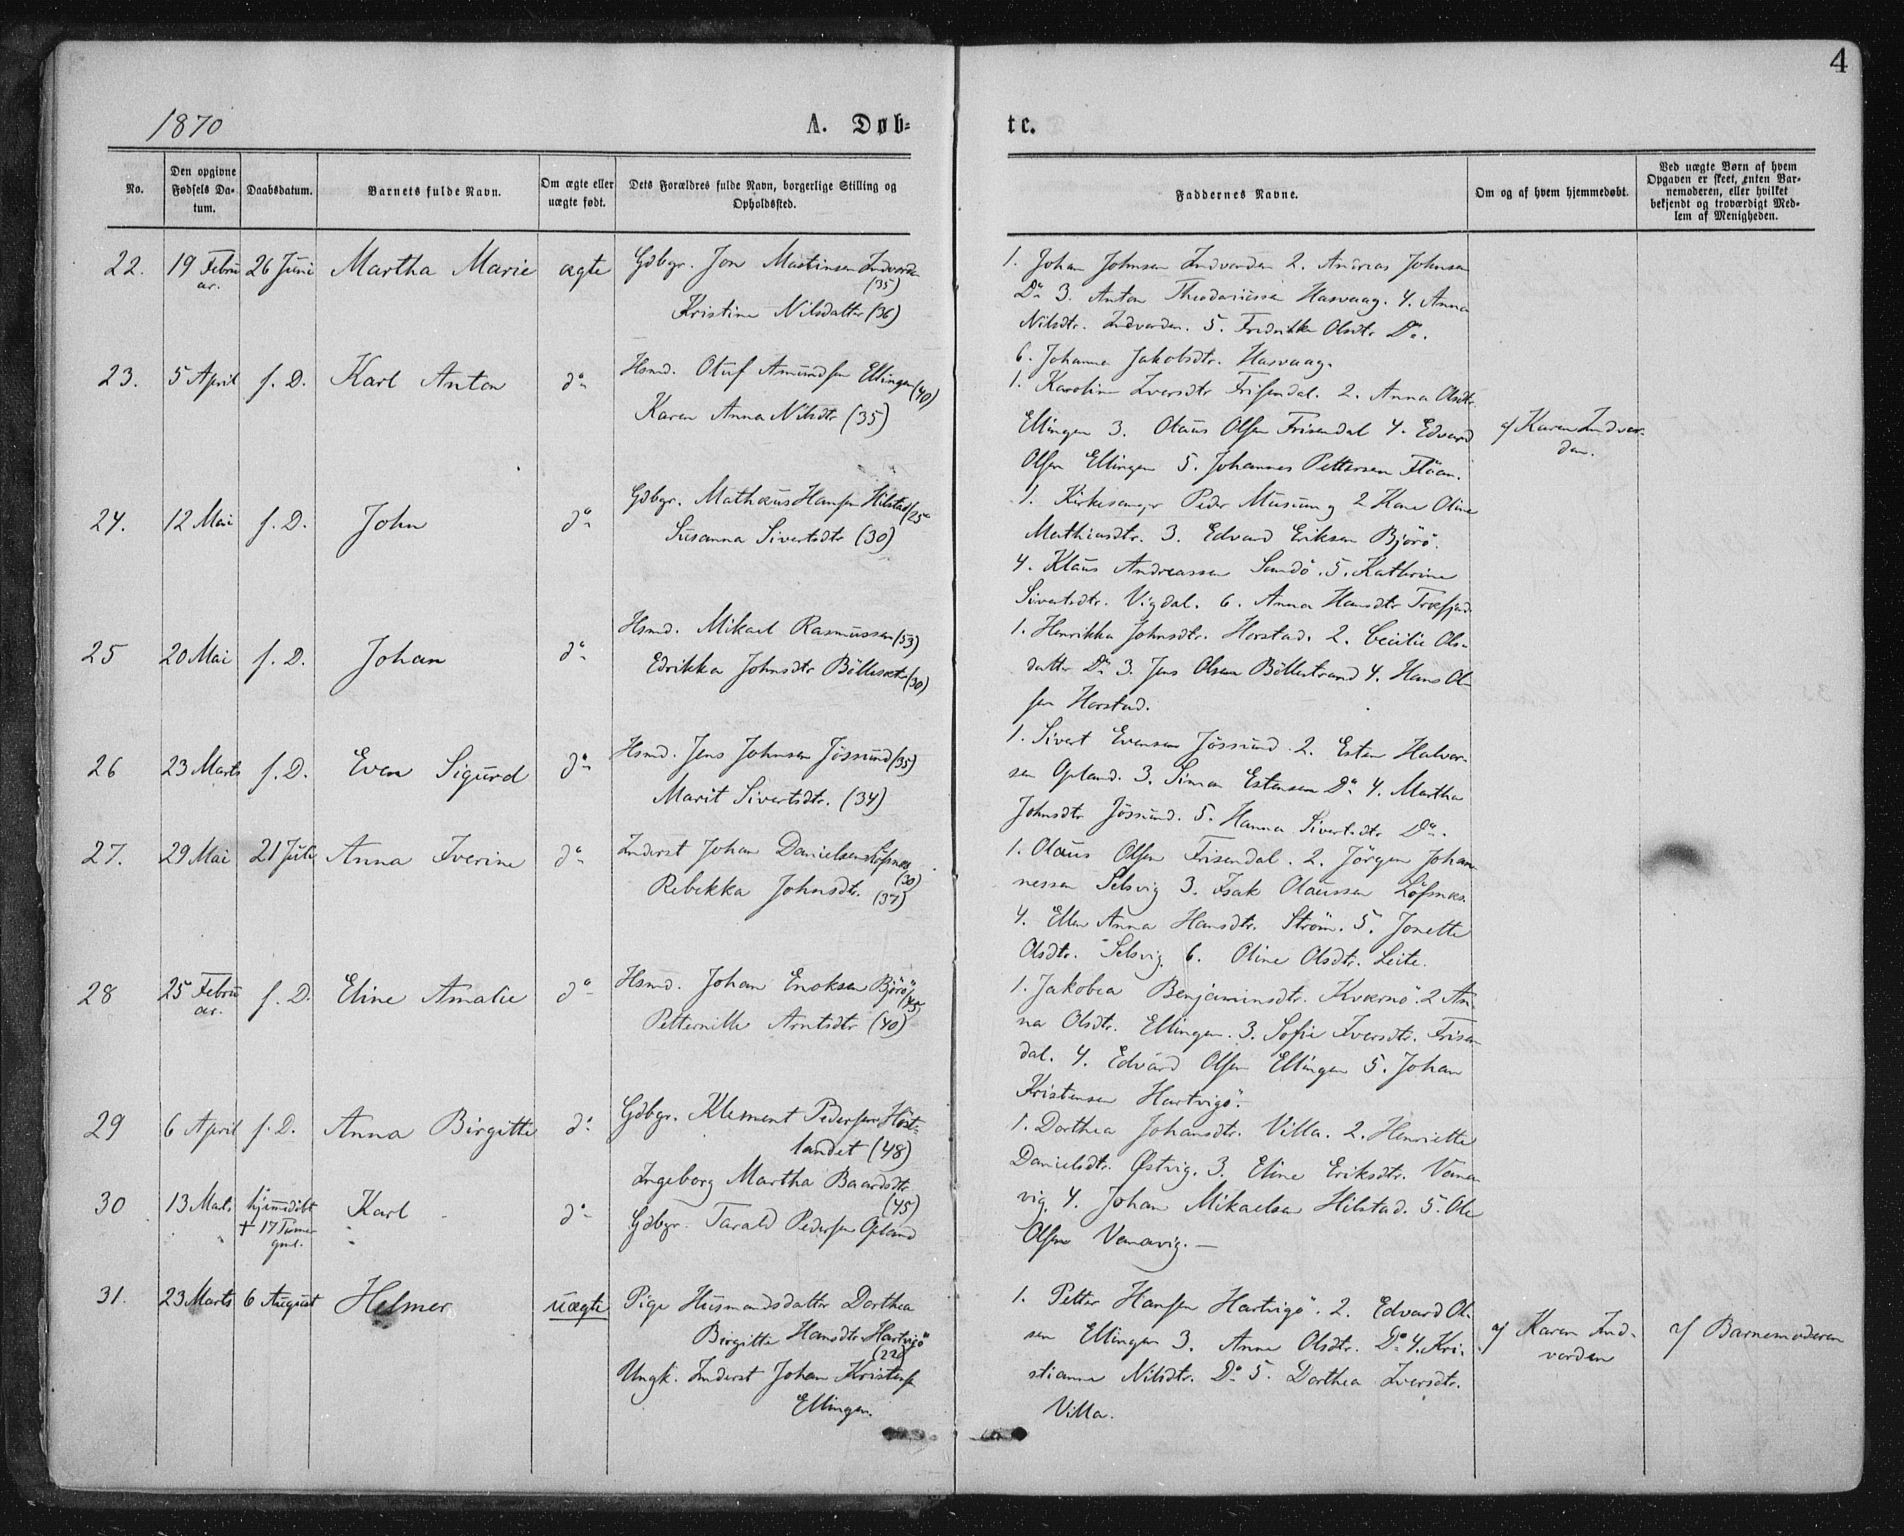 4
1870
A. Døb-
te.
No.
Den opgivne Fødsels Da-tum.
Daabsdatum.
Barnets fulde Navn.
Om ægte eller uægte født.
Dets Forældres fulde Navn, borgerlige Stilling og Opholdssted.
Faddernes Navne.
Om og af hvem hjemmedøbt.
Ved uægte Børn af hvem Opgaven er skeet, enten Bar-nemoderen, eller hvilket bekjendt og troværdigt Med-lem af Menigheden.
22. 19 Febru 26 Juni Martha Marie ægte Gdbgr. Jon Martinsen Indvorden
ar. (35)
Kristine Nilsdatter (36)
1. Johan Johnsen Indvorden 2. Andreas Johnsen
Do 3. Anton Theodoriussen Hasvaag. 4. Anna
Nilsdtr. Indvorden. 5. Fredrikke Olsdtr Do.
6. Johanna Jakobsdtr. Hasvaag.
23. 5 April s. D. Karl Anton do Hsmd. Oluf Amundsen Ellingen (40)
Karen Anna Nilsdtr (35)
1. Karoline Iversdtr Frisendal. 2. Anna Olsdtr.
Ellingen 3. Olaus Olsen Frisendal 4. Edvard
Olsen Ellingen 5. Johannes Pettersen Flöan.
af Karen Indvor-
den.
24. 12 Mai s. D. John do Gdbgr. Mathæus Hansen Hilstad (25
Susanna Sivertsdtr (30)
1. Kirkesanger Peder Musum 2 Kone Oline
Mathiasdtr. 3. Edvard Eriksen Björö.
4. Klaus Andreassen Sandö. 5. Kathrine
Sivertsdtr. Vigdal. 6. Anna Hansdtr
25 20 Mai s. D. Johan do Hsmd. Mikael Rasmussen (53)
Edrikka Johnsdtr Böllesæter (30)
1. Henrikka Johnsdtr. Horstad. 2. Cecilie Ols-
datter Do 3. Jens Olsen Böllestrand 4. Hans Ol-
sen Horstad.
26 23 Marts s. D. Even Sigurd do Hsmd. Jens Johnsen Jössund (35)
Marit Sivertsdtr. (34)
1. Sivert Evensen Jössund. 2. Esten Halvor-
sen Opland. 3. Simon Estensen Do 4. Martha
Johnsdtr Jössund. 5. Hanna Sivertsdtr Do.
27. 29 Mai 21 Juli Anna Iverine do Inderst Johan Danielsen Löfsnes
(30)
Rebekka Johnsdtr. (37)
1. Olaus Olsen Frisendal. 2. Jörgen Johan-
nessen Selsvig 3. Isak Olaussen Löfsnes.
4. Ellen Anna Hansdtr. Ström. 5. Jonette
Olsdtr. Selsvig 6. Oline Olsdtr. Leite.
28 25 Febru s. D. Eline Amalie do Hsmd. Johan Enoksen Björö
ar. (45)
Petternille Arntsdtr (40)
1. Jakobea Benjaminsdtr. Kværnö. 2 An-
na Olsdtr. Ellingen. 3. Sofie Iversdtr. Frisen-
dal. 4. Edvard Olsen Ellingen 5. Johan
Kristensen Hartvigö.
29 6 April s. D. Anna Birgitte do Gdbgr. Klement Pedersen Höst-
landet (48)
Ingeborg Martha Baardsdtr
(45)
1. Dorthea Johansdtr. Villa. 2. Henriette
Danielsdtr. Østvig. 3. Eline Eriksdtr. Vema-
vig 4. Johan Mikaelsen Hilstad. 5. Ole
Olsen Vemavig. —
30 13 Mai. hjemdöbt Karl do Gdbgr. Tarald Pedersen Opland
+ 17 Timer
gml.
31. 23 Marts 6 August Helmer uægte Pige Husmandsdatter Dorthea
Birgitte Hansdtr. Hartvigö
(22)
Ungk. Inderst Johan Kristensen
Ellingen.
1. Petter Hansen Hartvigö. 2. Edvard Ol-
sen Ellingen 3. Anne Olsdtr. Do 4. Kri-
stianna Nilsdtr. Do 5. Dorthea Iversdtr.
Villa.
af Karen Ind-
vorden
af Barnemoderen